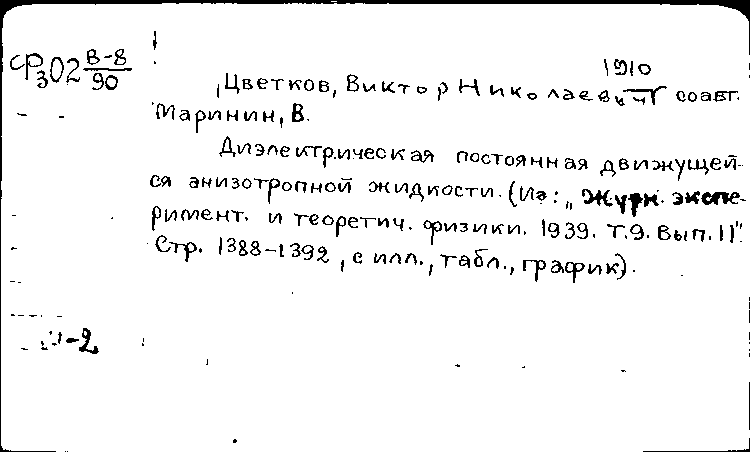 1910
СР₃02 В-8/90
Цветков, Виктор Николаевич соавт.
Маринин, В.
Диэлектрическая постоянная движущей-
ся анизотропной жидкости. (Из: „Журн. экспе-
римент. и теоретич. физики. 1939. Т.9. Вып. 11".
Стр. 1388-1392, с илл., табл., график).